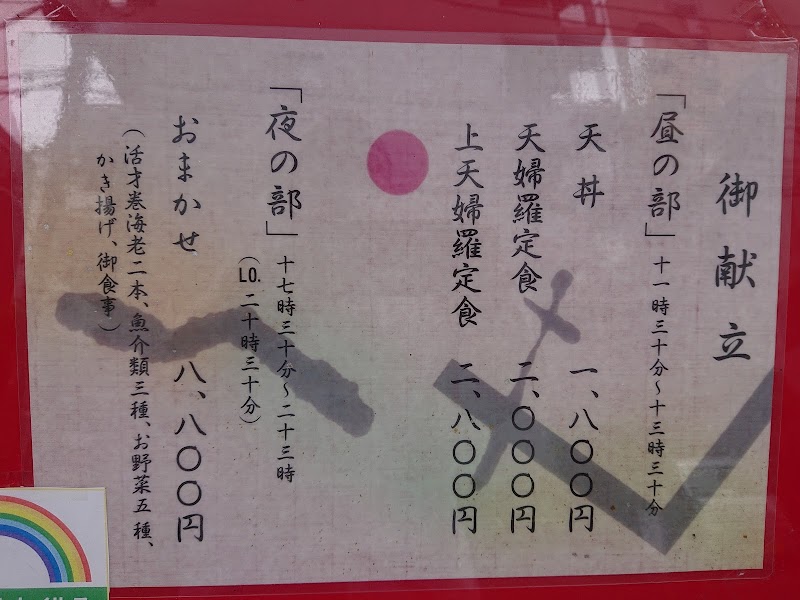 御献立
「昼の部」 十一時三十分～十三時三十分
天丼 一、八〇〇円
天婦羅定食 二、〇〇〇円
上天婦羅定食 二、八〇〇円
「夜の部」 十七時三十分～二十三時
（LO. 二十時三十分）
おまかせ 八、八〇〇円
（活才巻海老二本、魚介類三種、お野菜五種、
かき揚げ、御食事）